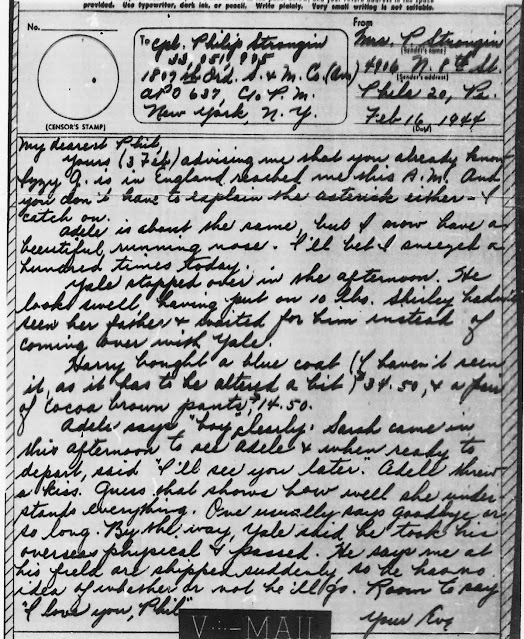 provided. Use typewriter, dark ink, or pencil. Write plainly. Very small writing is not suitable.
No.
(CENSOR'S STAMP)
To
Cpl. Philip Strongin
33,051,
1809th Ord. S. & M. Co. (Avn)
APO 637, C/o P.M.
New York, N.Y.
From
Mrs. P Strongin
(Sender's name)
4906 N. 8th St.
(Sender's address)
Phila 20, Pa.
Feb 16, 1944
(Date)
My dearest Phil,
Yours (3 Feb) advising me that you already know
Izzy J. is in England reached me this A.M. And
you don't have to explain the asterisk either - I
catch on.
Adele is about the same, but I now have a
beautiful running nose. I'll bet I sneezed a
hundred times today.
Yale stopped over in the afternoon. He
looks swell, having put on 10 lbs. Shirley hadn't
seen her father & waited for him instead of
coming over with Yale.
Harry bought a blue coat (I haven't seen
it, as it has to be altered a bit) $34.50, & a pair
of cocoa brown pants, $14.50.
Adele says "boy" clearly. Sarah came in
this afternoon to see Adele & when ready to
depart, said "I'll see you later." Adele threw
a kiss. Guess that shows how well she under
stands everything. One usually says goodbye or
so long. By the way, Yale said he took his
overseas physical & passed. He says me at
his field are shipped suddenly so he has no
idea of whether or not he'll go. Room to say
"I love you, Phil"
Your Eve
V-MAIL